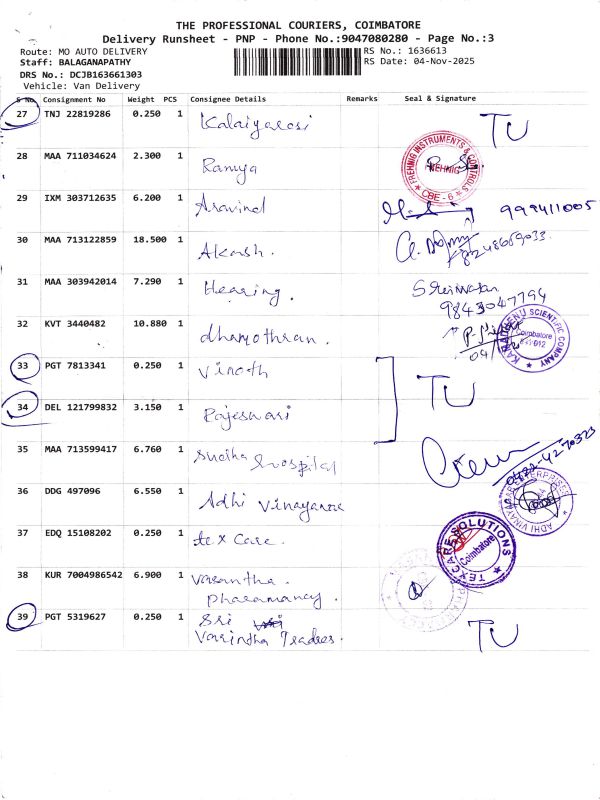 THE PROFESSIONAL COURIERS, COIMBATORE
Delivery Runsheet - PNP - Phone No.:9047080280 - Page No.:3
Route: MO AUTO DELIVERY
RS No.: 1636613
Staff: BALAGANAPATHY
RS Date: 04-Nov-2025
DRS No.: DCJB163661303
Vehicle: Van Delivery
S No. Consignment No Weight PCS Consignee Details Remarks Seal & Signature
27 TNJ 22819286 0.250 1 Kalaiyarosi TU
28 MAA 711034624 2.300 1 Ramya
FREHNIG INSTRUMENTS & CONTROLS
FREHNIG
CBE - 6
29 IXM 303712635 6.200 1 Aravind 999411005
30 MAA 713122859 18.500 1 Akash.
31 MAA 303942014 7.290 1 Hearing. Srinivasan
9843047794
32 KVT 3440482 10.880 1 dhamothran.
04
KAMADHENU SCIENTIFIC COMPANY
Coimbatore
33 PGT 7813341 0.250 1 Vinoth
34 DEL 121799832 3.150 1 Rajeswari
TU
35 MAA 713599417 6.760 1 Sneiha Hospital
0422-4270323
36 DDG 497096 6.550 1 Adhi Vinayaga
ADHI VINAYAGA ENTERPRISES
37 EDQ 15108202 0.250 1 tex Care.
TEXCARE SOLUTIONS
Coimbatore
38 KUR 7004986542 6.900 1 Vasantha.
pharamancy.
39 PGT 5319627 0.250 1 Sri
Varintha Traders.
TU